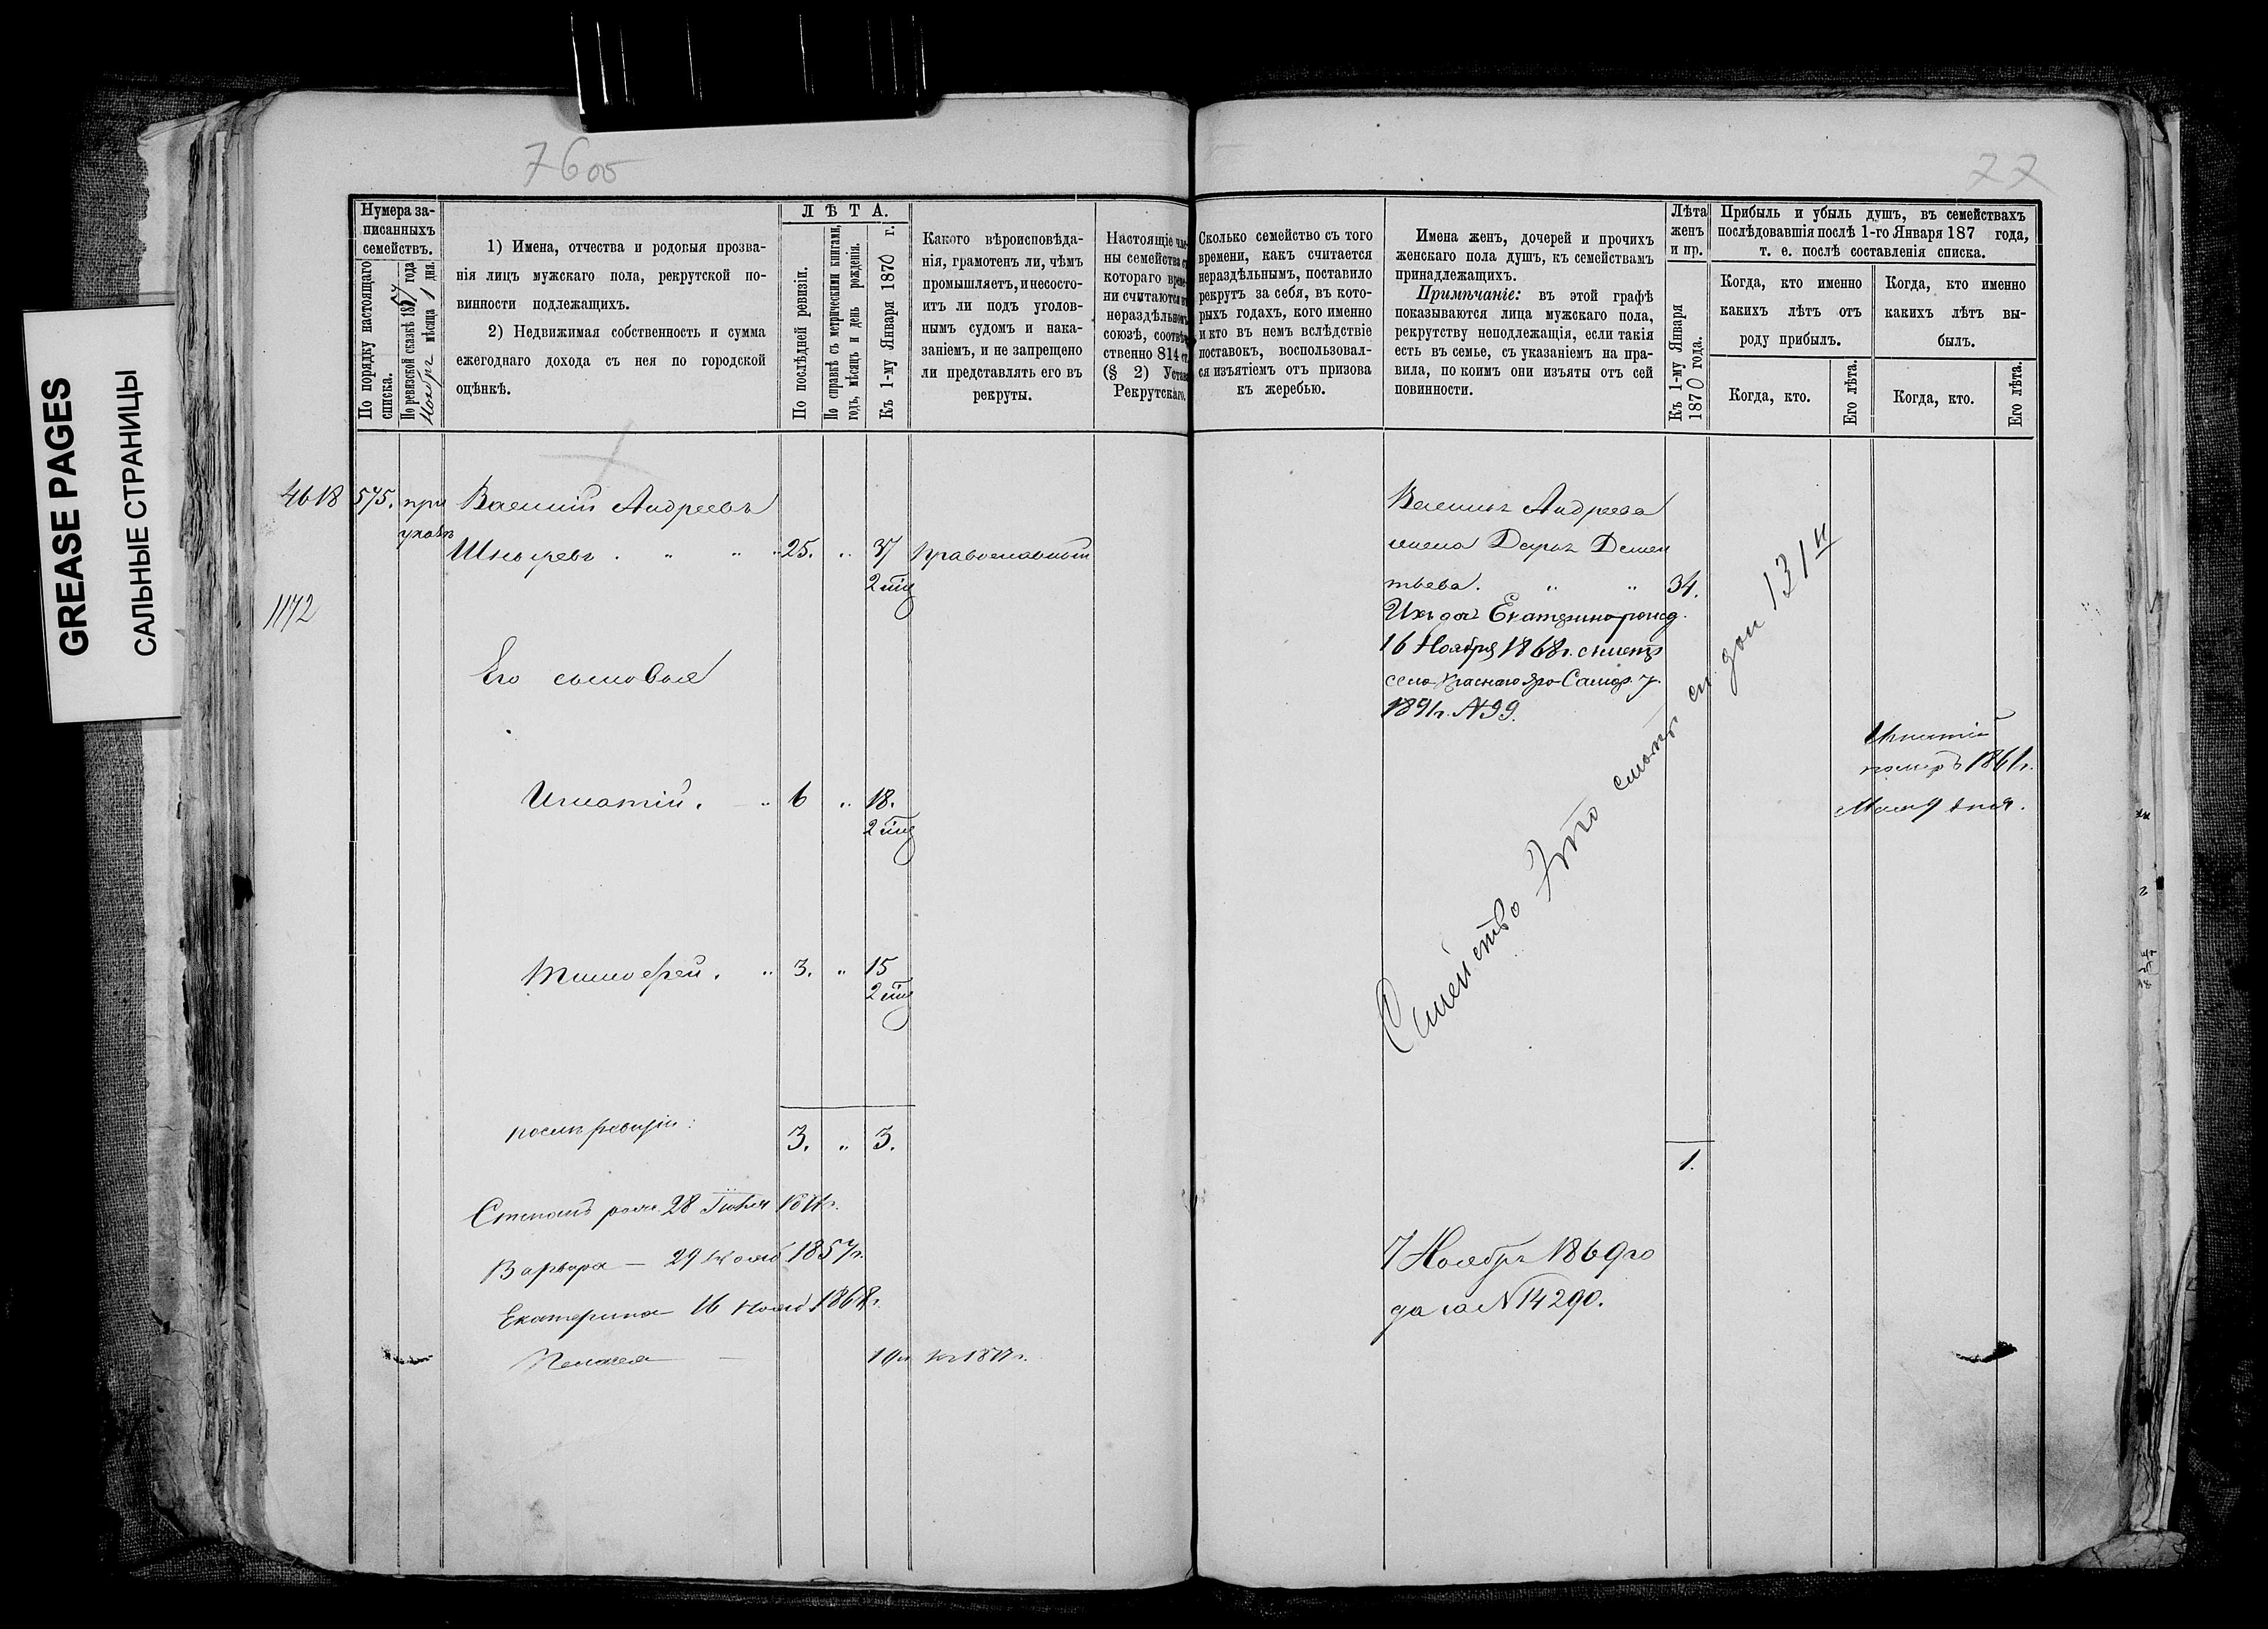 GREASE PAGES
САЛЬНЫЕ СТРАНИЦЫ
76об
77
Нумера за-
писанныхъ
семействъ.
По порядку настоящаго
списка.
По ревизской сказкѣ 1857 года
мѣсяца 1 дня.
1) Имена, отчества и родовыя прозва-
нія лицъ мужскаго пола, рекрутской по-
винности подлежащихъ.
2) Недвижимая собственность и сумма
ежегоднаго дохода съ нея по городской
оцѣнкѣ.
ЛѢТА.
По послѣдней ревизіи.
По справкѣ съ метрическими книгами,
годъ, мѣсяцъ и день рожденія.
Къ 1-му Января 1870 г.
Какого вѣроисповѣда-
нія, грамотенъ ли, чѣмъ
промышляетъ, и несосто-
итъ ли подъ уголов-
нымъ судомъ и нака-
заніемъ, и не запрещено
ли представлять его въ
рекруты.
Настоящіе
ны семейства
котораго
ни считаются
нераздѣльномъ
союзѣ,
ственно 814 ст.
(§ 2)
Рекрутскаго.
Сколько семейство съ того
времени, какъ считается
нераздѣльнымъ, поставило
рекрутъ за себя, въ кото-
рыхъ годахъ, кого именно
и кто въ немъ вслѣдствіе
поставокъ, воспользовал-
ся изъятіемъ отъ призова
къ жеребью.
Имена женъ, дочерей и прочихъ
женскаго пола душъ, къ семействамъ
принадлежащихъ.
Примѣчаніе: въ этой графѣ
показываются лица мужскаго пола,
рекрутству неподлежащія, если такія
есть въ семье, съ указаніемъ на пра-
вила, по коимъ они изъяты отъ сей
повинности.
Лѣта
женъ
и пр.
Къ 1-му Января
1870 года.
Прибыль и убыль душъ, въ семействахъ
послѣдовавшія послѣ 1-го Января 187 года,
т. е. послѣ составленія списка.
Когда, кто именно
какихъ лѣтъ отъ
роду прибылъ.
Когда, кто.
Его лѣта.
Когда, кто именно
какихъ лѣтъ вы-
былъ.
Когда, кто.
Его лѣта.
4618 575. Василій Андреевъ
Шныревъ . " " " 25. " 37 православный
1172
Его сыновья
Игнатій . " 6 " 18.
Тимофей . " 3. " 15
послѣ ревизіи:
3. " 3.
Степанъ 28
Варвара — 29 нояб 1857г.
Екатерина — 16 нояб 1868г.
Пелагея — 19л къ 1877г.
Василья Андреева
жена Дарья Демен
тьева . " " 34.
Ихъ дочь Екатерина рожд.
16 Ноября 1868г.
село Краснаго Яра Самар. у.
1891г. №99.
Семейство Это смотр
131
Игнатій
померъ 1861г.
1.
7 Ноября 1869го
да за №14290.